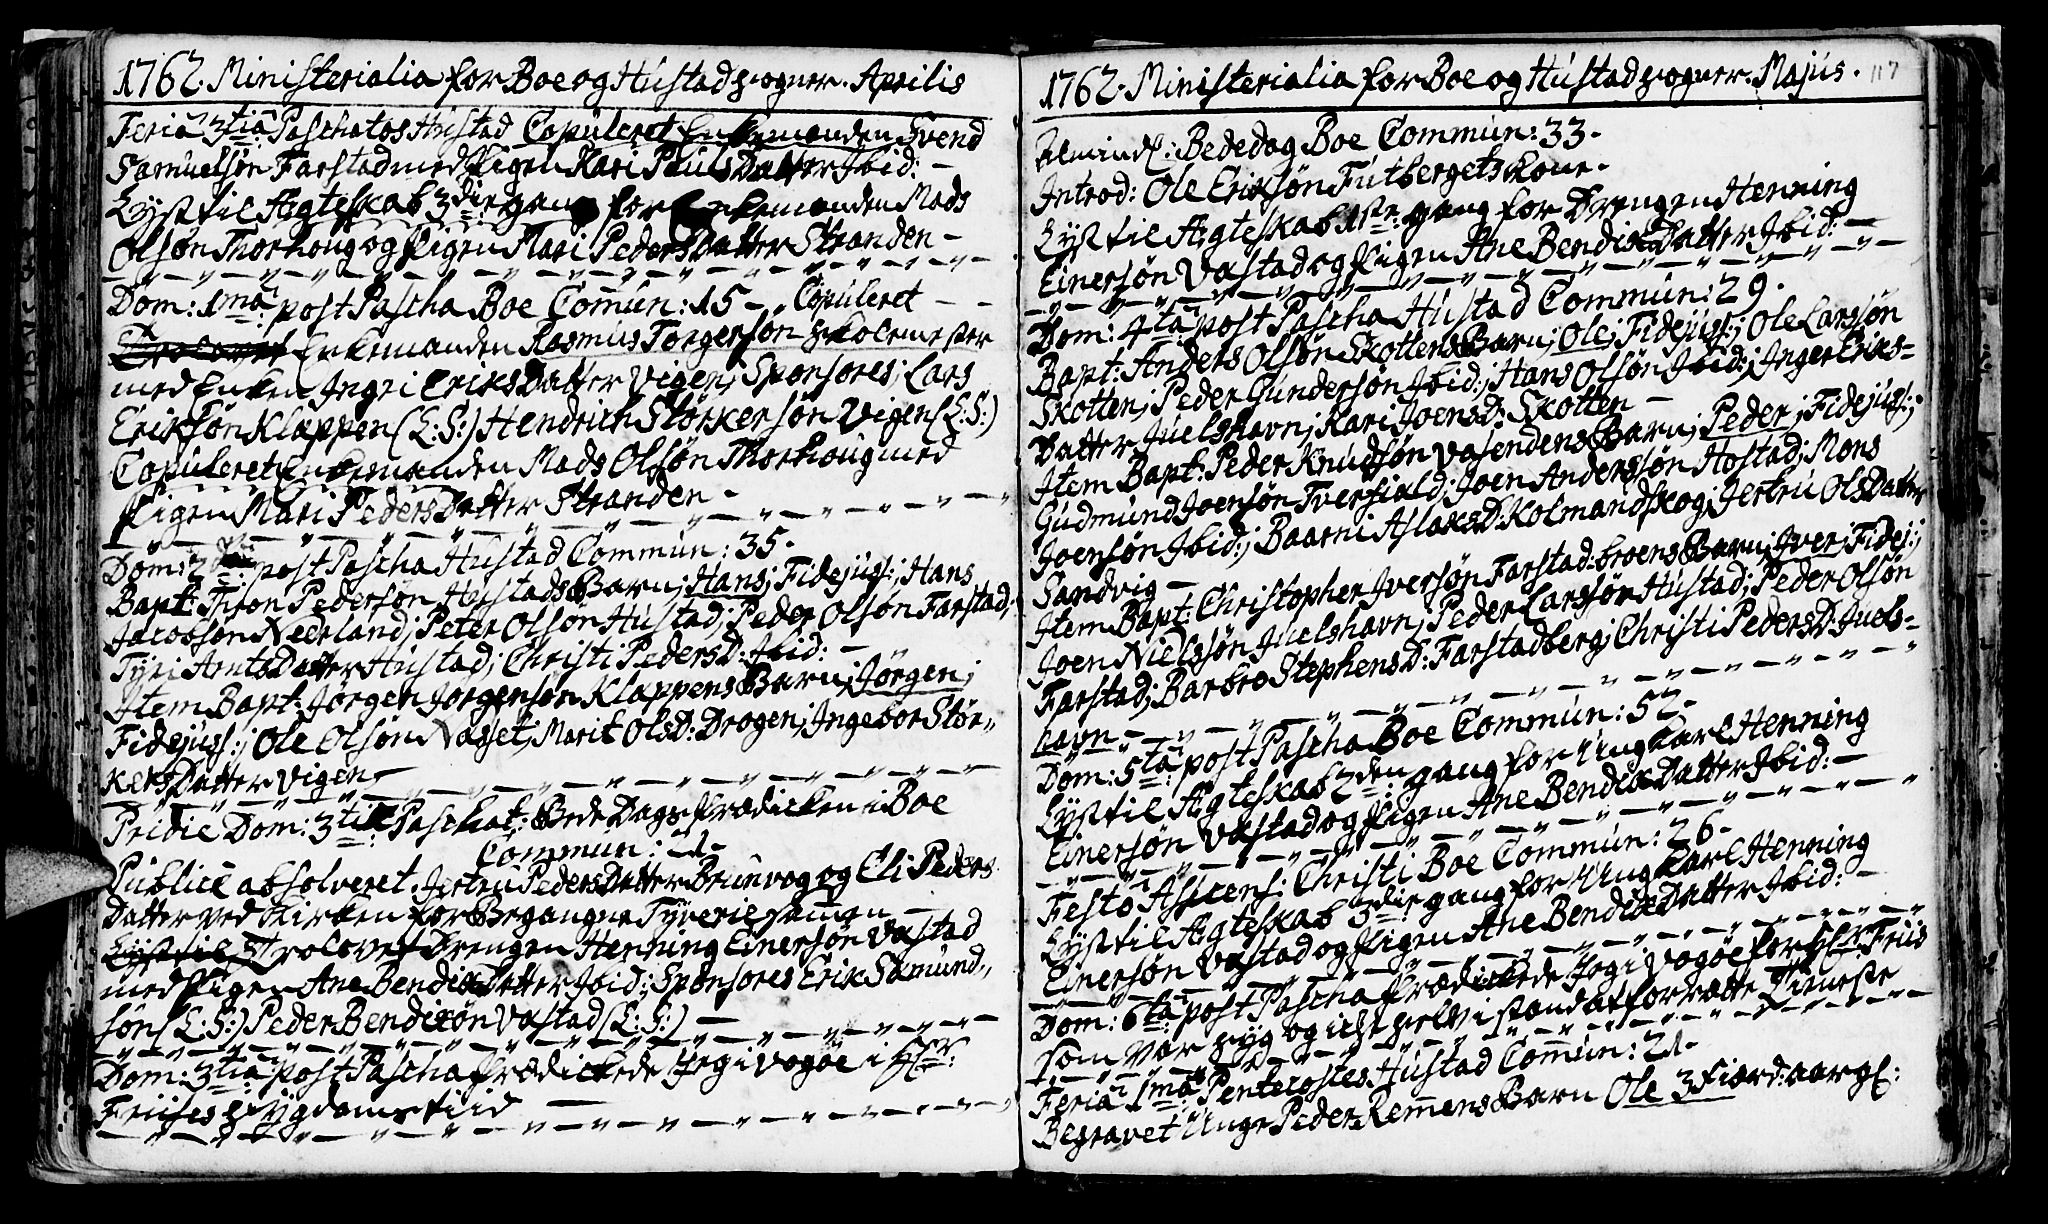 1762. Ministerialia for Boe og Hústad sogner. Aprilis
Feria 3tia Paschatos Hústad Copúleret Enkemanden Svend
Samúelsøn Farstad med Pigen Kari PaúlsDatter Ibid: —
Lyst til Ægteskab 3die gang for Enkemanden Mads
Olsøn Thorhoug og Pigen Mari PedersDatter Stranden —
Dom: 1ma post Pascha Boe Com̄ún: 15 — Copúleret
Trolovet Enkemanden Rasmús Torgersøn Skolemester
med Enken Ingri EriksDatter Vigen; Sponsores; Lars
Eriksøn Klappen (L: S:) Hendrich Størkersøn Vigen (L: S:)
Copúleret Enkemanden Mads Olsøn Thorhoúg med
Pigen Mari PedersDatter Stranden —
Dom: 2da post Pascha Hústad Com̄ún: 35.
Bapt: Thron Pedersøn Hústads Barn; Hans; Fidejúss:; Hans
Jacobsøn Neerland; Peter Olsøn Hústad; Peder Olsøn Farstad;
Tÿri ArntsDatter Hústad; Christi PedersD: Ibid: —
Item Bapt: Jørgen Jørgensøn Klappens Barn; Jørgen;
Fidejúss:; Ole Olsøn Nasset; Marit OlsD: Drogen; Ingebor Stør„
kersDatter Vigen —
Pridie Dom: 3tiæ Paschat: BedeDags Prædicken i Boe
Com̄ún: 21.
Publicè absolveret. Jertrú PedersDatter Brúnvog og Eli Peders
Datter ved Kirken for Begangne Tyverie sam̄en —
Lyst til Trolovet Drengen Henning Einersøn Vastad
med Pigen Ane BendixDatter Ibid:; Sponsores Erik Sæmúnd„
søn (L: S:) Peder Bendixøn Vastad (L: S:) —
Dom: 3tia post Pascha Prædickede Jeg i Vogøe i Hr:
Friises Sygdoms tiid —
1762. Ministerialia for Boe og Hústad sogner. Majús. 117
Almindl: Bededag Boe Com̄ún: 33.
Introd: Ole Eriksøn Fútbergets kone.
Lyst til Ægteskab 1ste gang for Drengen Henning
Einersøn Vastad og Pigen Ane BendixDatter Ibid: —
Dom: 4ta post Pascha Hústad Com̄ún: 29.
Bapt: Anders Olsøn Skottens Barn; Ole; Fidejúss:; Ole Larssøn
Skotten; Peder Gúndersøn Ibid:; Hans Olsøn Ibid:; Inger Eriks=
Datter Júelshavn; Kari JoensD: Skotten —
Item Bapt: Peder Knúdsøn Vasendens Barn; Peder; Fidejúss:;
Gúdmúnd Joensøn Tverfiald; Joen Andersøn Hostad; Mons
Joensøn Ibid:; Baarni AslaksD: Kolmandskog; Jertrú OlsDatter
Sandvig —
Item Bapt: Christopher Iversøn Farstad:broens Barn; Iver; Fidej:;
Joen Nielssøn Júelshavn; Peder Larssøn Hústad; Peder Olsøn
Farstad; Barbro StephensD: Farstadberg; Christi PedersD: Júels=
havn —
Dom: 5ta post Pascha Boe Com̄ún: 52.
Lyst til Ægteskab 2den gang for Ung Karl Henning
Einersøn Vastad og Pigen Ane BendixDatter Ibid: —
Festo Asscens: Christi Boe Com̄ún: 26.
Lyst til Ægteskab 3die gang for Ung Karl Henning
Einersøn Vastad og Pigen Ane BendixDatter Ibid: —
Dom: 6ta post Pascha Prædickede Jeg i Vogøe for Hr: Friis
som var syg og icke selv i stand at forrætte Tieneste
Feria 1ma Pentecostes Hústad Com̄ún: 21.
Begravet Unge Peder Rem̄ens Barn Ole 3 fiord:aar gl: